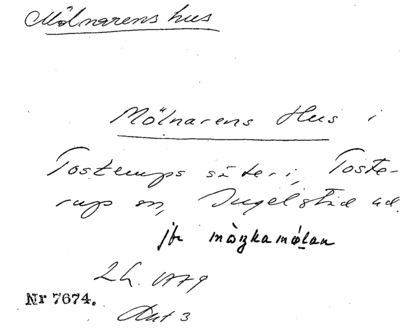 Mölnarens hus
Mölnarens Hus i
Tosterups säteri, Toste-
rup sn, Ingelstad hd.
jfr
1779
Nr 7674.
Akt 3